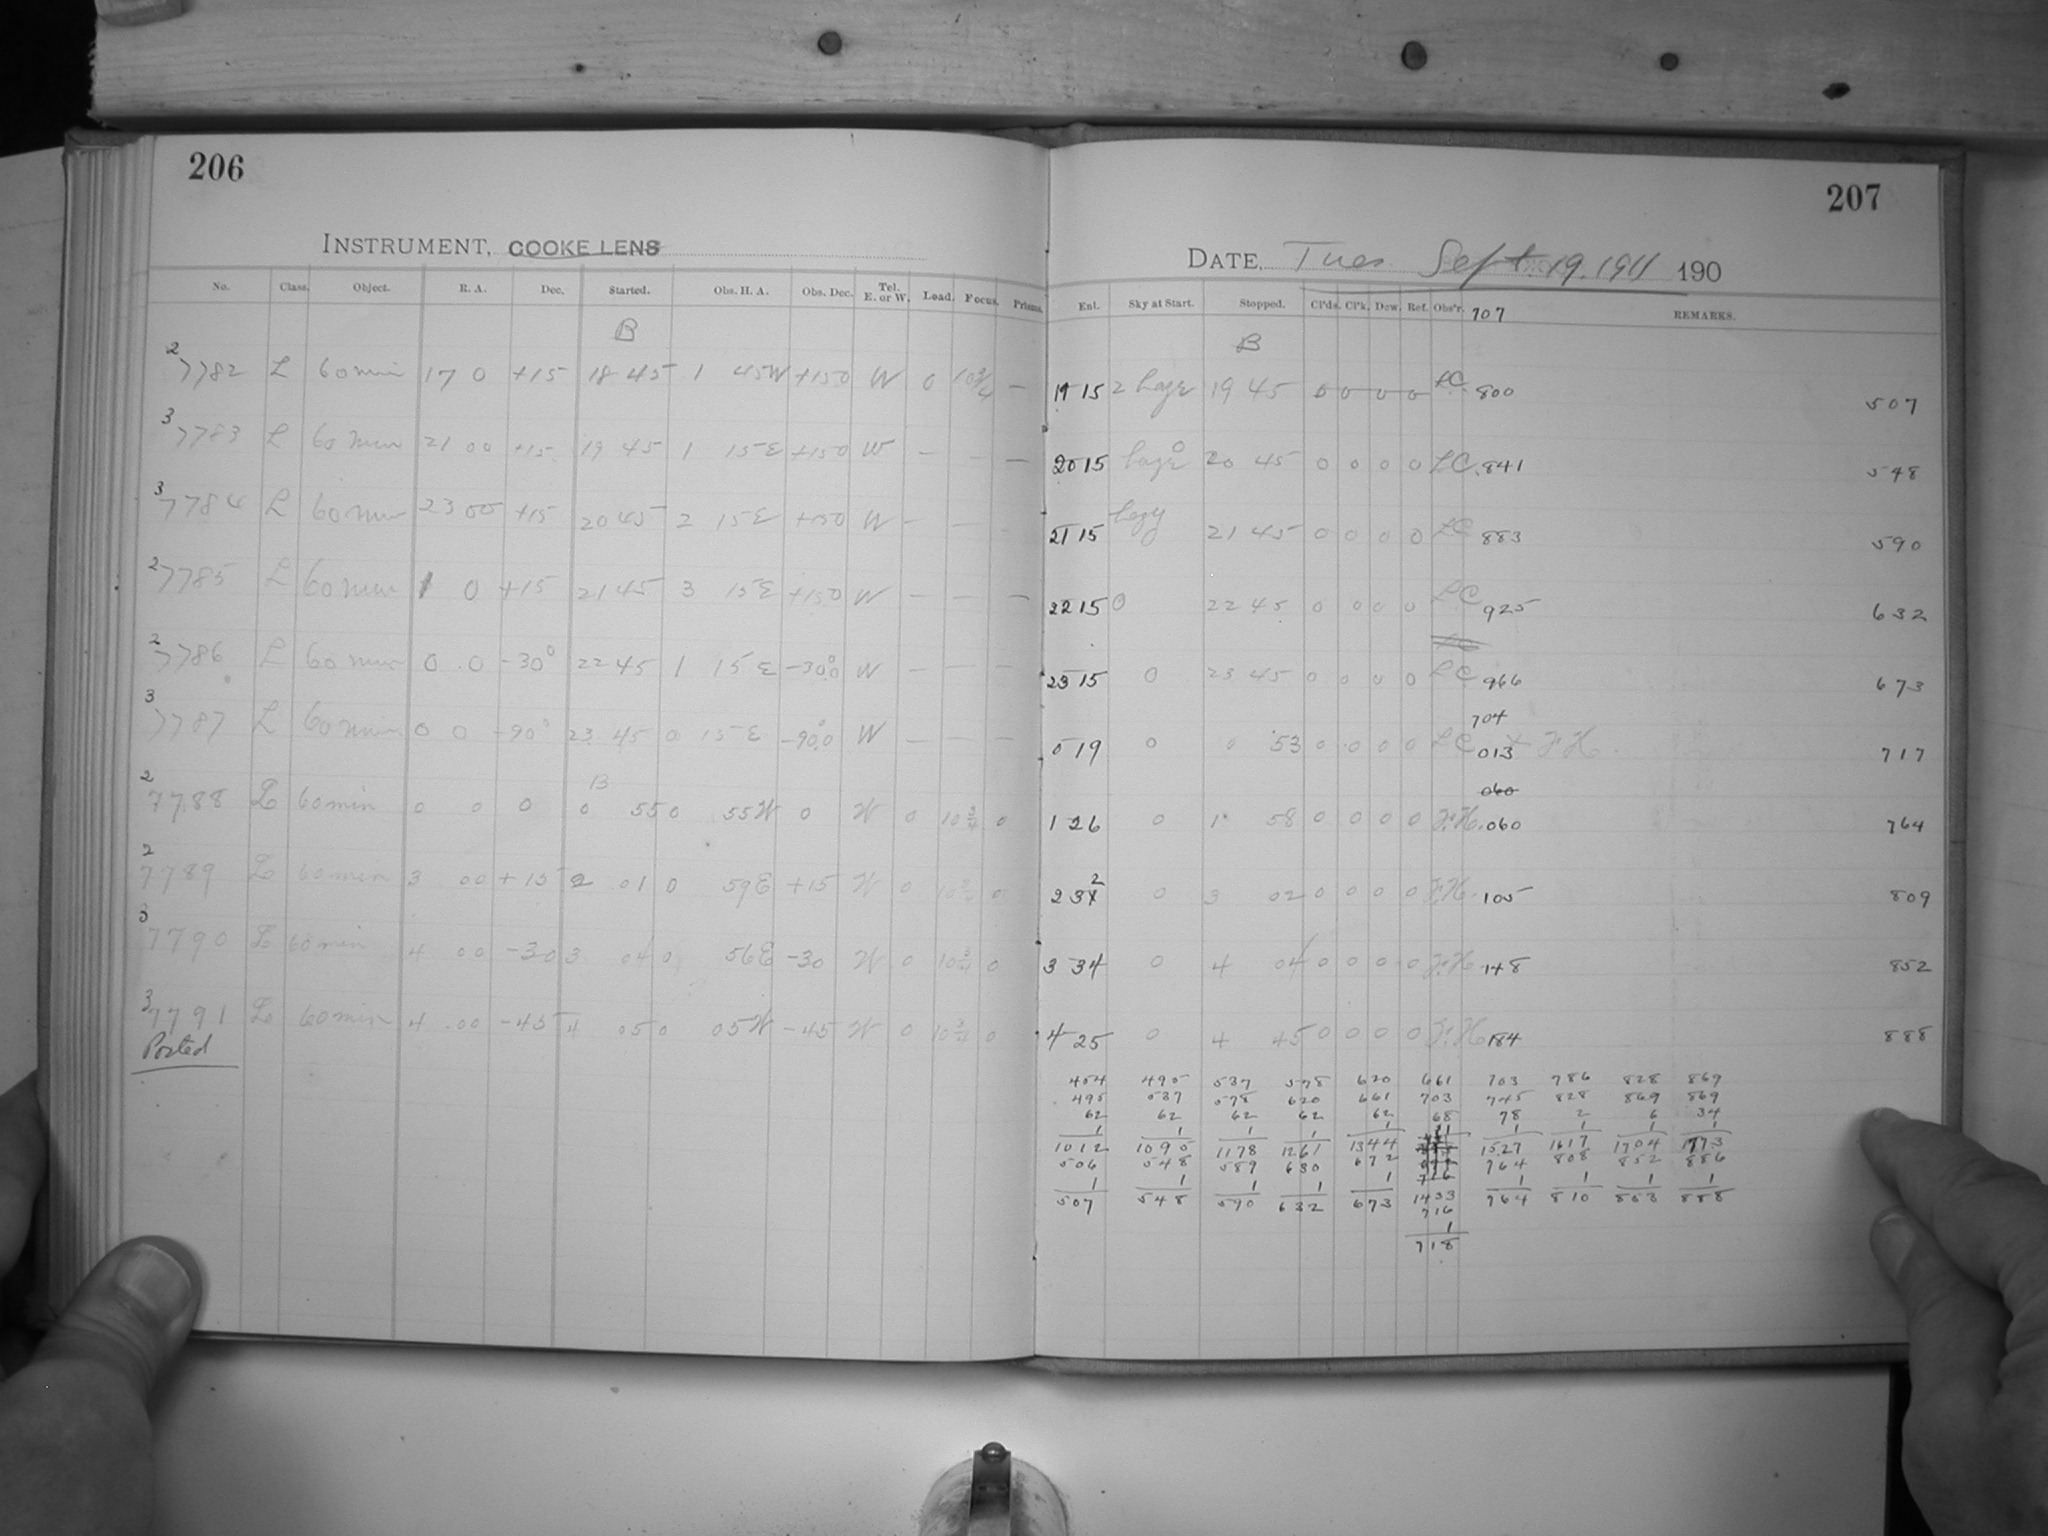 206
207
INSTRUMENT, COOKE LENS
DATE, Tues Sept. 19. 1911 190
No. Class. Object. R. A. Dec. Started. Obs. H. A. Obs. Dec. Tel. E. or W. Load. Focus. Prisms. Ent. Sky at Start. Stopped. Cl'ds. Cl'k. Dew. Ref. Obs'r. 707 REMARKS.
B B
2 7782 L 60 min 17 0 +15 18 45 1 45W +150 W 0 10 3/4 — 19 15 2 haze 19 45 0 0 0 0 LC. 800 507
3 7783 L 60 min 21 00 +15 19 45 1 15E +150 W — — — 20 15 haze 0 20 45 0 0 0 0 LC. 841 548
3 7784 L 60 min 23 00 +15 20 45 2 15E +150 W — — 21 15 hazy 21 45 0 0 0 0 LC 883 590
2 7785 L 60 min 1 0 +15 21 45 3 15E +150 W — — — 22 15 0 22 45 0 0 0 0 LC 925 632
2 7786 L 60 min 0 0 -30° 22 45 1 15E -30°0 W — — — 23 15 0 23 45 0 0 0 0 LC 966 673
704
3 7787 L 60 min 0 0 -90° 23 45 0 15E -90°0 W — — — 0 19 0 0 53 0 0 0 0 LC 013 + F.H. 717
13 060
2 7788 L 60 min 0 0 0 0 55 0 55W 0 W 0 10 3/4 0 1 26 0 1 58 0 0 0 0 F.H. 060 764
2 7789 L 60 min 3 00 +15 2 01 0 59E +15 W 0 10 3/4 0 2 31 2 0 3 02 0 0 0 0 F.H. 105 809
3 7790 L 60 min 4 00 -30 3 04 0 56E -30 W 0 10 3/4 0 3 34 0 4 04 0 0 0 0 F.H. 148 852
3 7791 L 60 min 4 00 -45 4 05 0 05W -45 W 0 10 3/4 0 4 25 0 4 45 0 0 0 0 F.H. 184 888
Posted
454 495 537 578 620 661 703 786 828 869
495 537 578 620 661 703 745 828 869 869
62 62 62 62 62 68 78 2 6 34
1 1 1 1 1 1 1 1 1 1
1012 1095 1178 1261 1344 1527 1617 1704 1773
506 548 589 630 672 764 808 852 886
1 1 1 1 1 716 1 1 1 1
507 548 590 632 673 1433 764 810 853 888
716
1
718